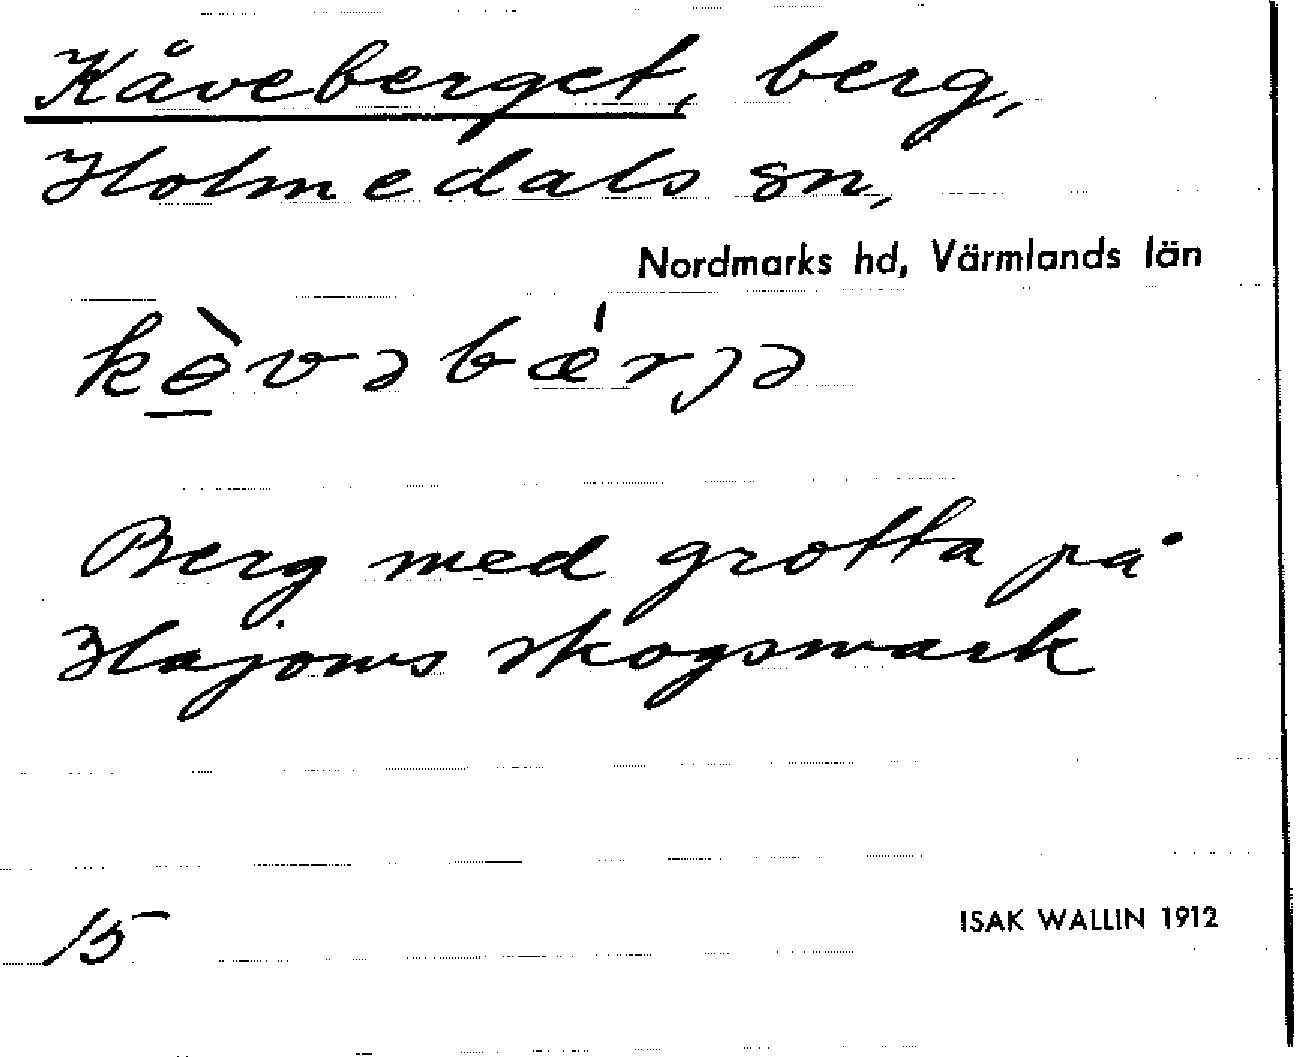 Kåveberget, berg,
Holmedals sn,
Nordmarks hd, Värmlands län
kò̠vəbǽrjə
Berg med grotta på
Hajoms skogsmark
15
ISAK WALLIN 1912